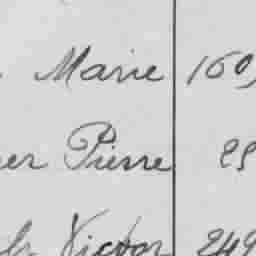 Marie 160
er Pierre 25
Victor 249